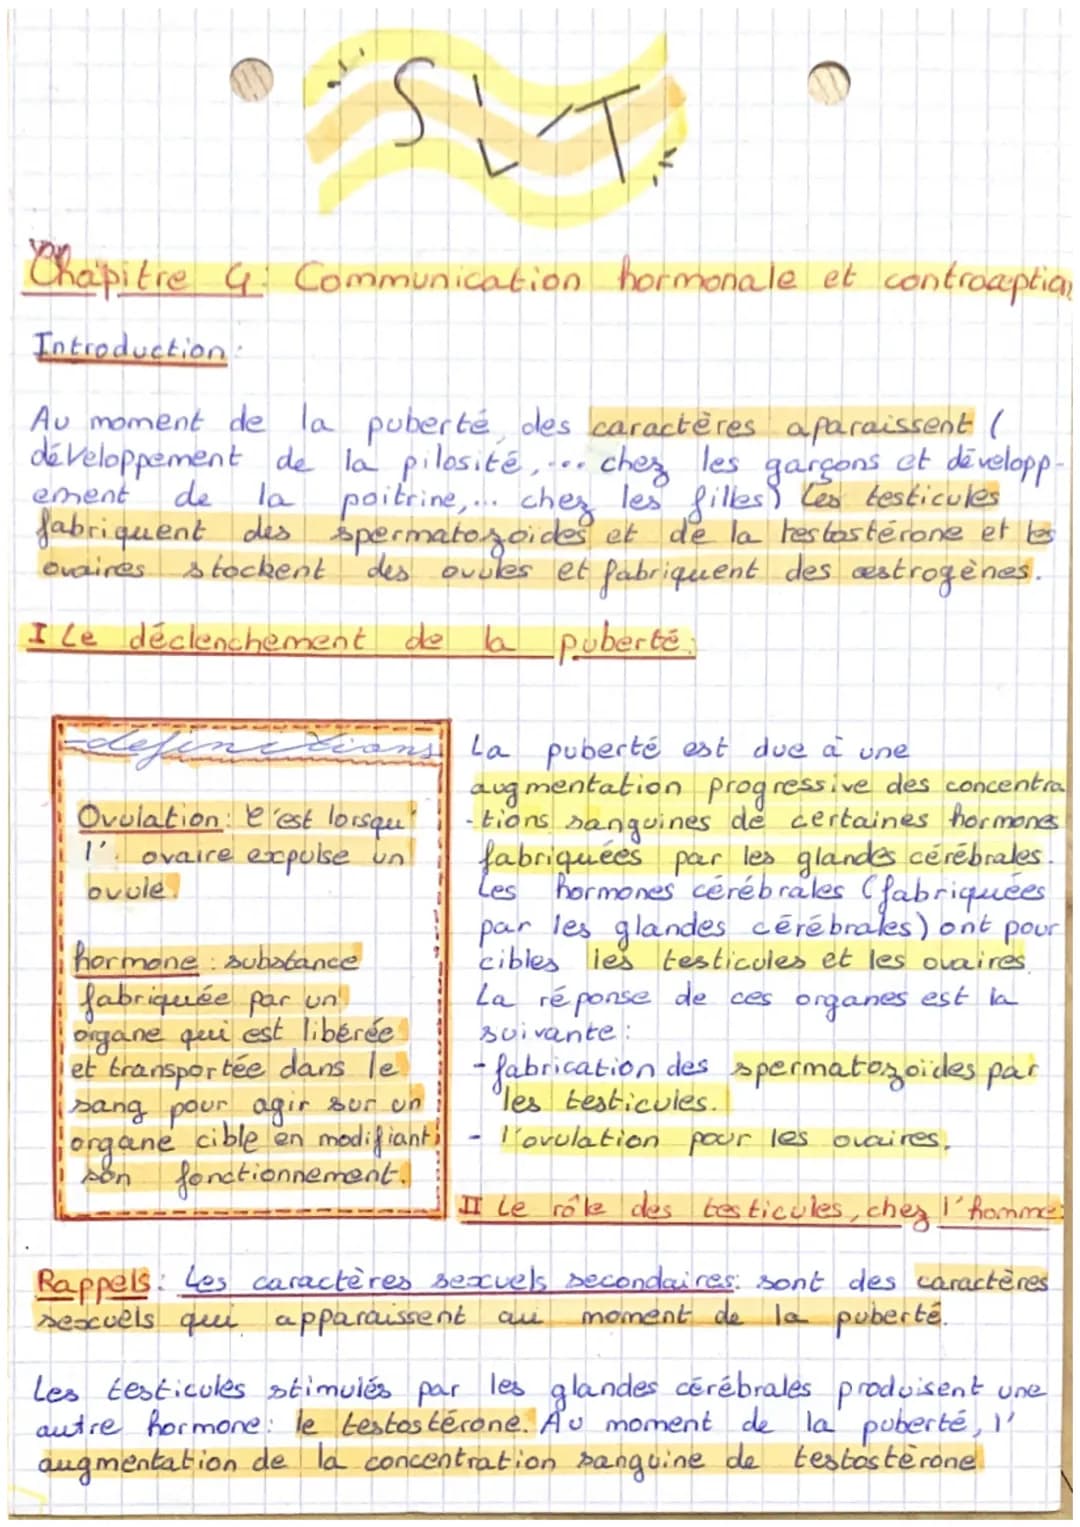 SVT
Chapitre 4: Communication hormonale et contraception
Introduction:
Au moment de la puberté, des caractères aparaissent (
développement de la pilosité,... chez les garçons et développ-
ement de la poitrine,... chez les filles) Les testicules
fabriquent des spermatozoides et de la testostérone et les
ovaires stockent des ovules et fabriquent des œstrogènes.
I Le déclenchement de la puberté:
définitions
Ovulation: C'est lorsqu'
l' ovaire expulse un
ovule.
hormone: substance
fabriquée par un
organe qui est libérée
et transportée dans le
sang pour agir sur un
organe cible en modifiant
son fonctionnement.
La puberté est due à une
augmentation progressive des concentra
-tions sanguines de certaines hormones
fabriquées par les glandes cérébrales.
Les hormones cérébrales (fabriquées
par les glandes cérébrales) ont pour
cibles les testicules et les ovaires.
La réponse de ces organes est la
suivante:
-fabrication des spermatozoïdes par
les testicules.
- l'ovulation pour les ovaires.
II Le rôle des testicules, chez l'homme:
Rappels: Les caractères sexuels secondaires: sont des caractères
sexuels qui apparaissent au moment de la puberté.
Les testicules stimulés par les glandes cérébrales produisent une
autre hormone: le testostérone. Au moment de la puberté, l'
augmentation de la concentration sanguine de testostèrone